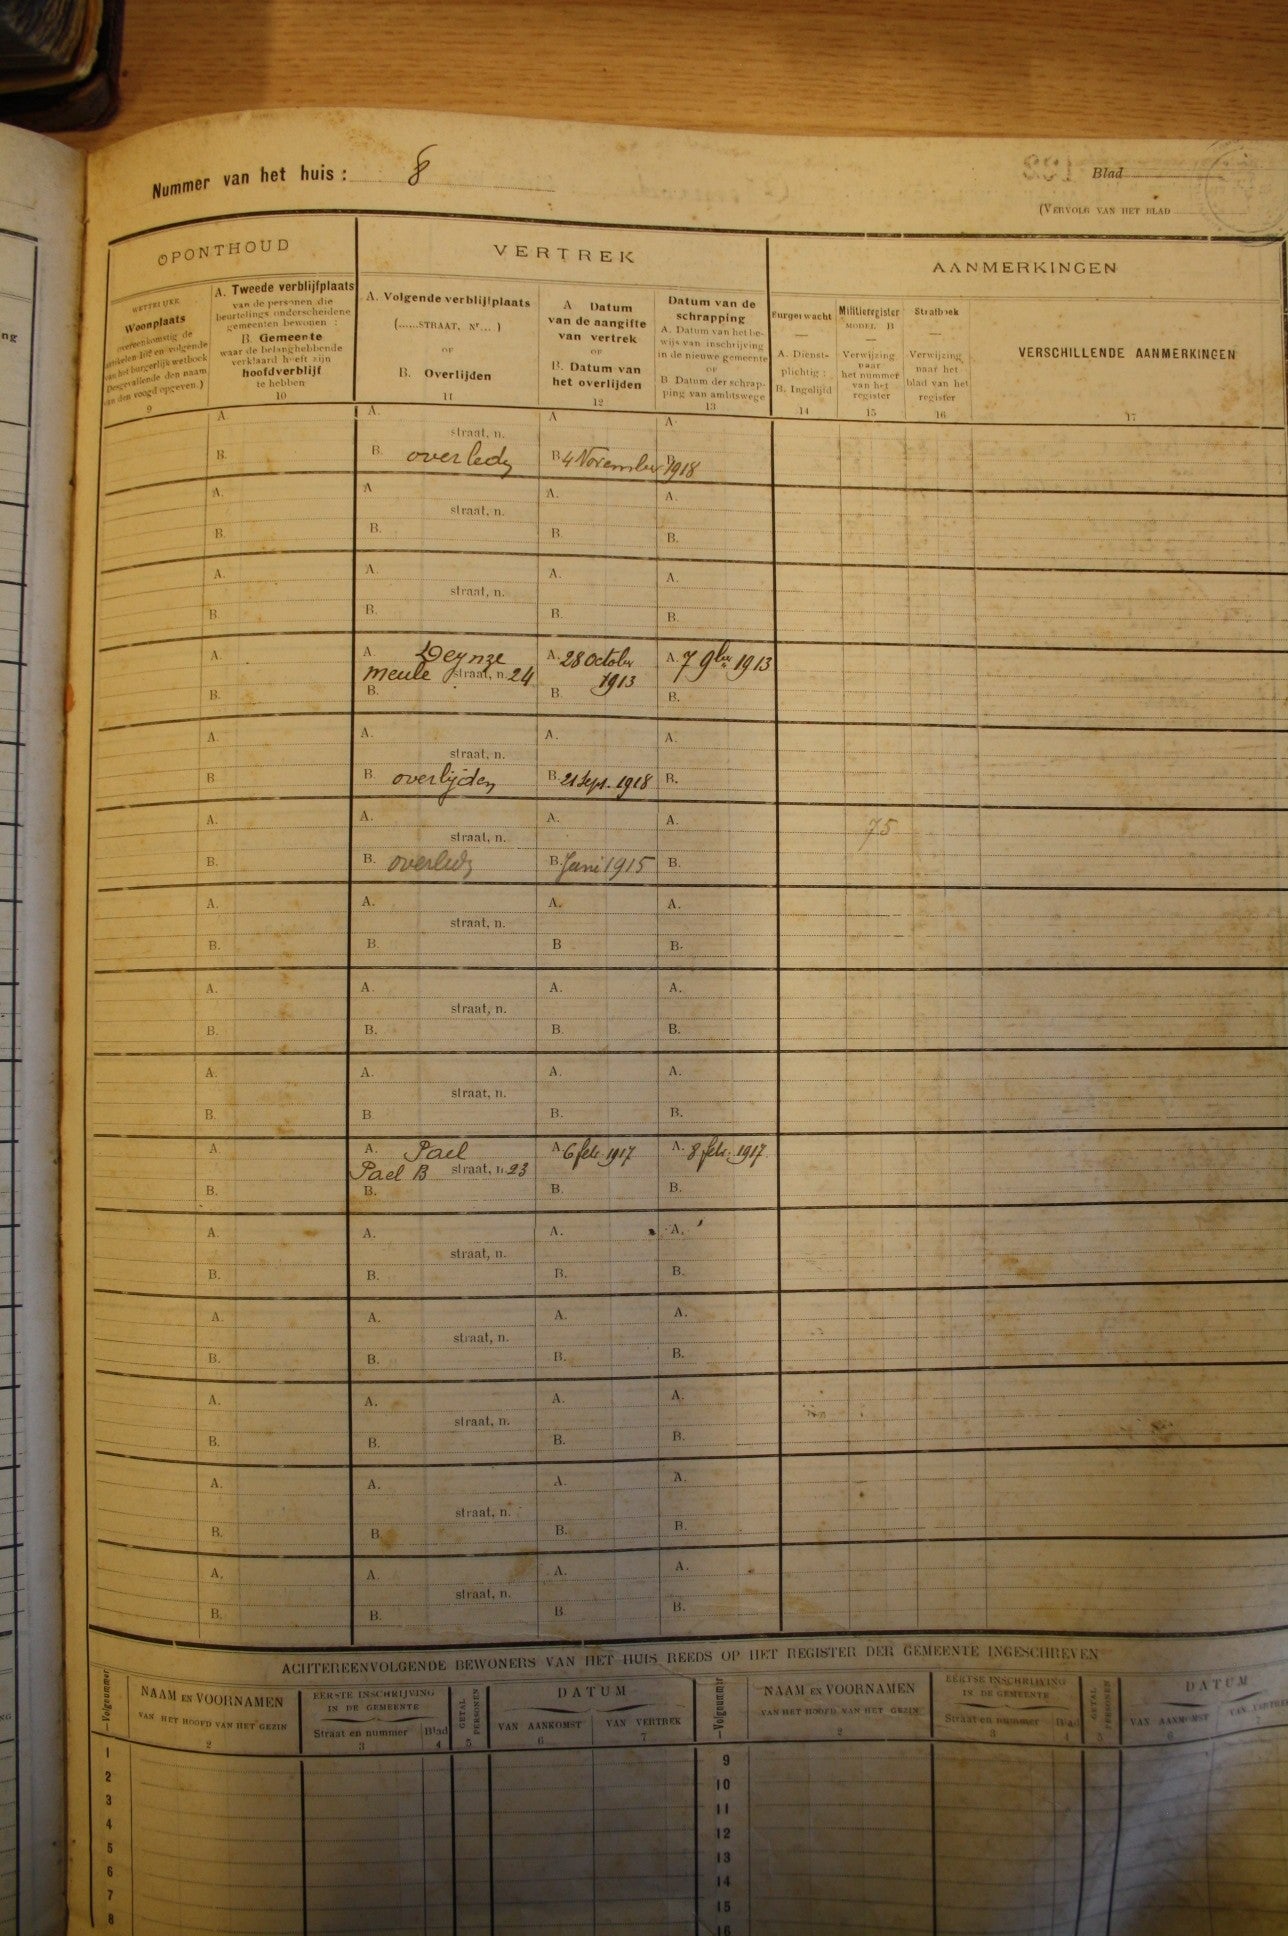 Nummer van het huis : 8
Blad
(VERVOLG VAN HET BLAD
OPONTHOUD
VERTREK
AANMERKINGEN
WETTELIJKE
Woonplaats
overeenkomstig de
artikelen 102 en volgende
van het burgerlijk wetboek
(Desgevallende den naam
van den voogd opgeven.)
9
A. Tweede verblijfplaats
van de personen die
beurtelings onderscheidene
gemeenten bewonen :
B. Gemeente
waar de belanghebbende
verklaard heeft zijn
hoofdverblijf
te hebben
10
A. Volgende verblijfplaats
(......STRAAT, Nr... )
OF
B. Overlijden
11
A Datum
van de aangifte
van vertrek
OF
B. Datum van
het overlijden
12
Datum van de
schrapping
A. Datum van het be-
wijs van inschrijving
in de nieuwe gemeente
OF
B Datum der schrap-
ping van ambtswege
13
Burgerwacht
A. Dienst-
plichtig :
B. Ingelijfd
14
Militieregister
MODEL B
Verwijzing
naar
het nummer
van het
register
15
Strafboek
Verwijzing
naar het
blad van het
register
16
VERSCHILLENDE AANMERKINGEN
17
A. A. A A.
straat, n.
B. B. overledn B. 4 November B. 1918
A. A A. A.
straat, n.
B. B. B. B.
A. A. A. A.
straat, n.
B. B. B. B.
A. A. Deynze A. 28 October A. 7 9ber 1913
meule straat, n. 24 1913
B. B. B. B.
A. A. A. A.
straat, n.
B B. overlijden B. 21 Sept. 1918 B.
A. A. A. A. 75
straat, n.
B. B. overledn B. Juni 1915 B.
A. A. A. A.
straat, n.
B. B. B B.
A. A. A. A.
straat, n.
B. B. B. B.
A. A. A. A.
straat, n.
B. B. B. B.
A A. Pael A. 6 feb. 1917 A. 8 feb. 1917
Pael B straat, n. 23
B. B. B. B.
A. A. A. A.
straat, n.
B. B. B. B.
A. A. A. A.
straat, n.
B. B. B. B.
A. A. A. A.
straat, n.
B. B. B. B.
A. A. A. A.
straat, n.
B. B. B. B.
A. A. A. A.
straat, n.
B. B. B B.
ACHTEREENVOLGENDE BEWONERS VAN HET HUIS REEDS OP HET REGISTER DER GEMEENTE INGESCHREVEN
Volgnummer
NAAM EN VOORNAMEN
VAN HET HOOFD VAN HET GEZIN
2
EERSTE INSCHRIJVING
IN DE GEMEENTE
Straat en nummer Blad
3 4
GETAL PERSONEN
5
DATUM
VAN AANKOMST VAN VERTREK
6 7
Volgnummer
NAAM EN VOORNAMEN
VAN HET HOOFD VAN HET GEZIN
2
EERTSE INSCHRIJVING
IN DE GEMEENTE
Straat en nummer Blad
3 4
GETAL PERSONEN
5
DATUM
VAN AANKOMST VAN VERTREK
6 7
1 9
2 10
3 11
4 12
5 13
6 14
7 15
8 16